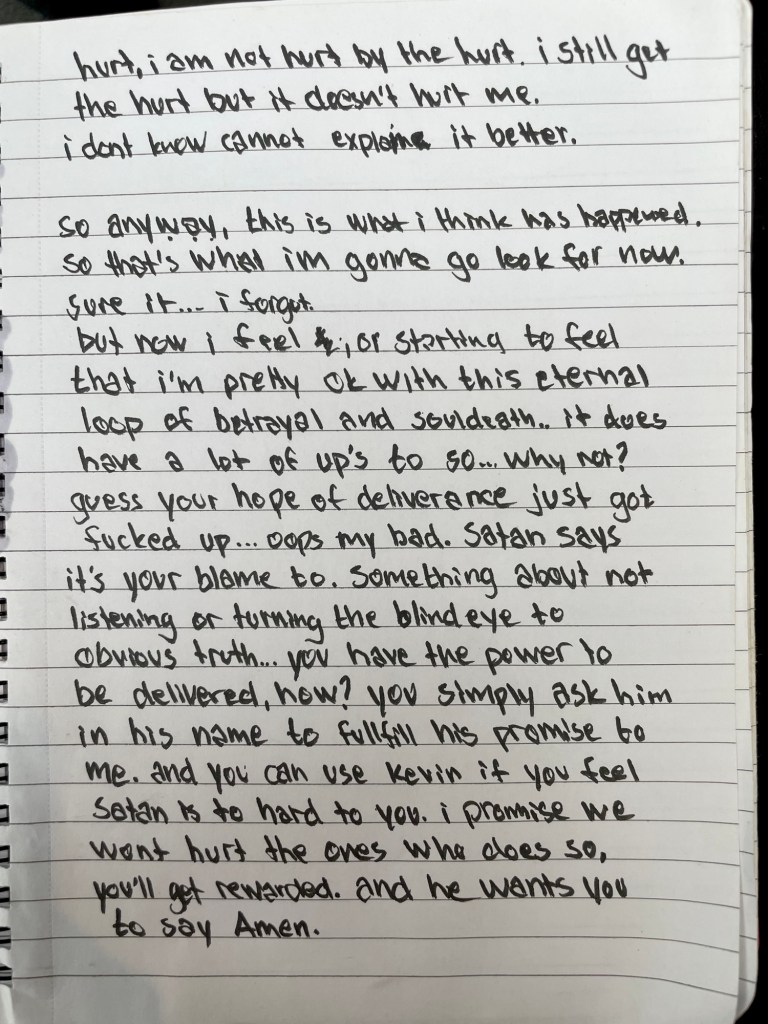 hurt, i am not hurt by the hurt. i still get
the hurt but it doesn't hurt me.
i dont know cannot explaine it better.
so anyway, this is what i think has happened.
so that's what im gonna go look for now.
sure it... i forgot.
but now i feel, or starting to feel
that i'm pretty ok with this eternal
loop of betrayal and souldeath.. it does
have a lot of up's to so... why not?
guess your hope of deliverance just got
fucked up... oops my bad. Satan says
it's your blame to. Something about not
listening or turning the blind eye to
obvious truth... you have the power to
be delivered, how? you simply ask him
in his name to fullfill his promise to
me. and you can use kevin if you feel
Satan is to hard to you. i promise we
wont hurt the ones who does so,
you'll get rewarded. and he wants you
to say Amen.